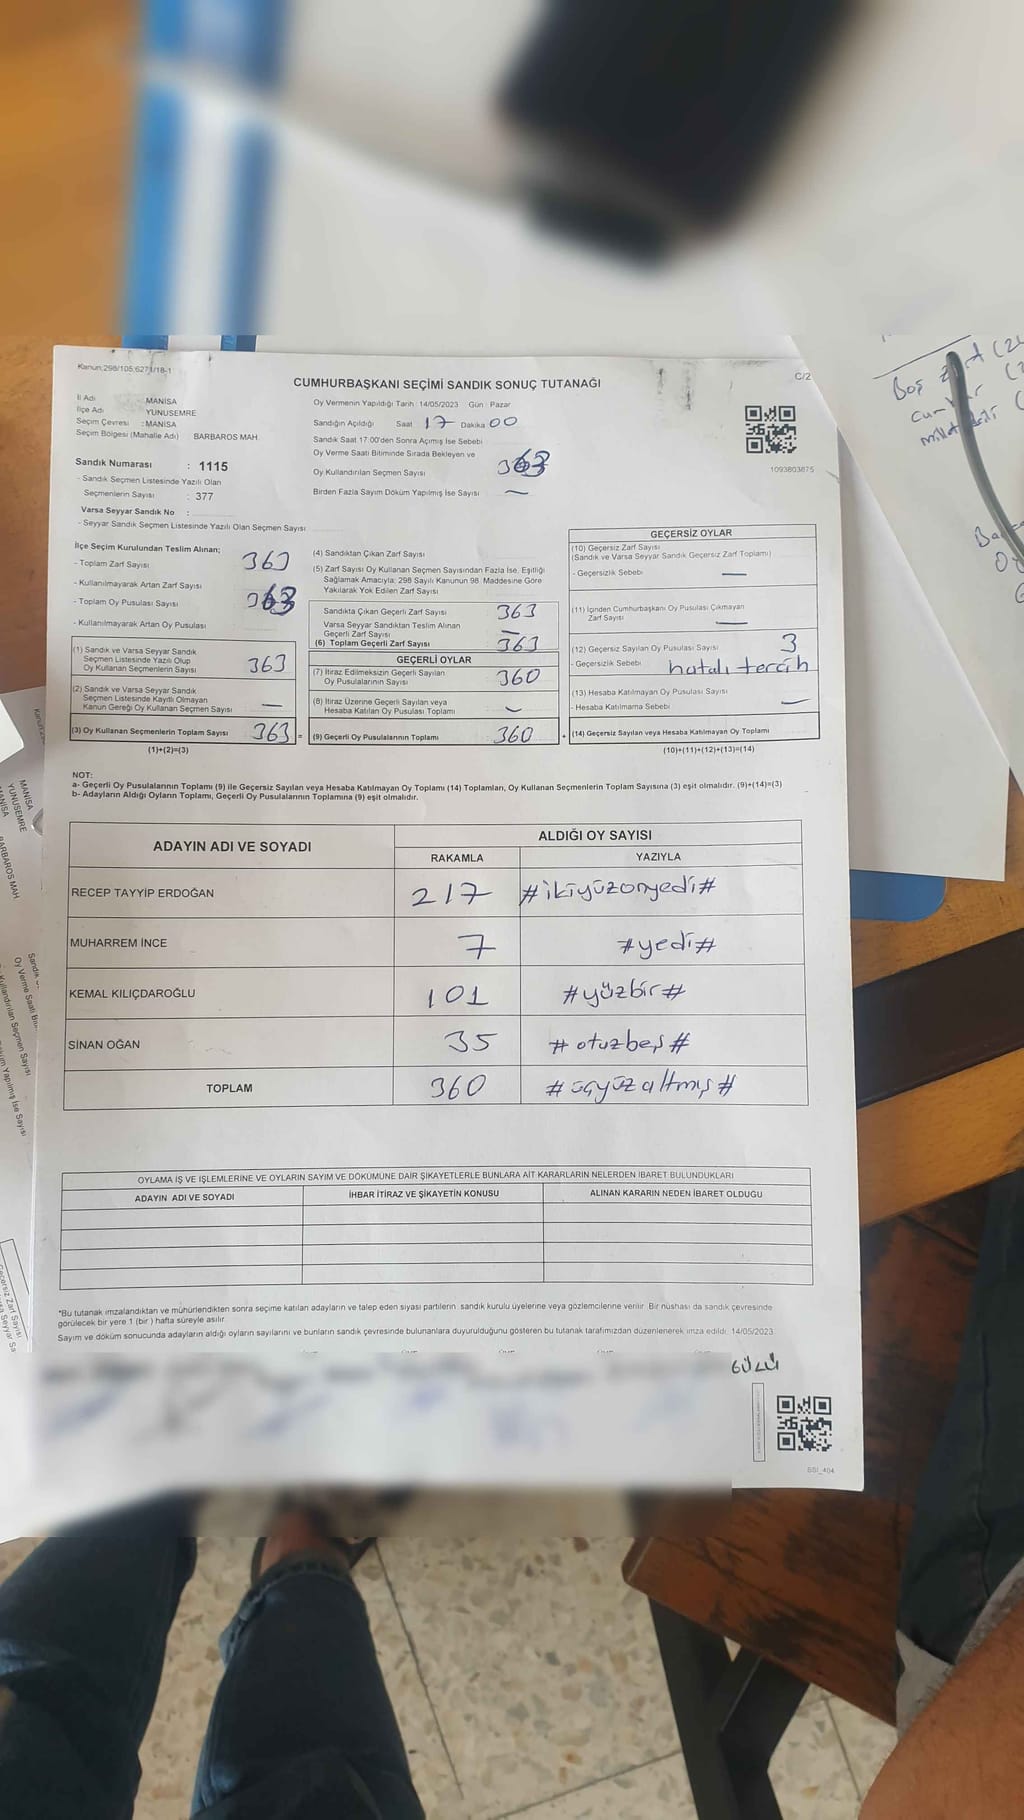 Kanun:298/105;6271/18-1
C/2
CUMHURBAŞKANI SEÇİMİ SANDIK SONUÇ TUTANAĞI
İl Adı MANİSA
İlçe Adı YUNUSEMRE
Seçim Çevresi : MANİSA
Seçim Bölgesi (Mahalle Adı) BARBAROS MAH.
Oy Vermenin Yapıldığı Tarih : 14/05/2023 Gün : Pazar
Sandığın Açıldığı Saat 17 Dakika 00
Sandık Saat 17.00'den Sonra Açımış İse Sebebi
Oy Verme Saati Bitiminde Sırada Bekleyen ve
Oy Kullandırılan Seçmen Sayısı 363
Birden Fazla Sayım Döküm Yapılmış İse Sayısı —
1093803875
Sandık Numarası : 1115
- Sandık Seçmen Listesinde Yazılı Olan
Seçmenlerin Sayısı : 377
Varsa Seyyar Sandık No :
- Seyyar Sandık Seçmen Listesinde Yazılı Olan Seçmen Sayısı
İlçe Seçim Kurulundan Teslim Alınan;
- Toplam Zarf Sayısı 363
- Kullanılmayarak Artan Zarf Sayısı
- Toplam Oy Pusulası Sayısı 363
- Kullanılmayarak Artan Oy Pusulası
(1) Sandık ve Varsa Seyyar Sandık
Seçmen Listesinde Yazılı Olup
Oy Kullanan Seçmenlerin Sayısı 363
(2) Sandık ve Varsa Seyyar Sandık
Seçmen Listesinde Kayıtlı Olmayan
Kanun Gereği Oy Kullanan Seçmen Sayısı —
(3) Oy Kullanan Seçmenlerin Toplam Sayısı 363 =
(1)+(2)=(3)
(4) Sandıktan Çıkan Zarf Sayısı
(5) Zarf Sayısı Oy Kullanan Seçmen Sayısından Fazla İse, Eşitliği
Sağlamak Amacıyla; 298 Sayılı Kanunun 98. Maddesine Göre
Yakılarak Yok Edilen Zarf Sayısı
Sandıkta Çıkan Geçerli Zarf Sayısı 363
Varsa Seyyar Sandıktan Teslim Alınan
Geçerli Zarf Sayısı —
(6) Toplam Geçerli Zarf Sayısı 363
GEÇERLİ OYLAR
(7) İtiraz Edilmeksizin Geçerli Sayılan
Oy Pusulalarının Sayısı 360
(8) İtiraz Üzerine Geçerli Sayılan veya
Hesaba Katılan Oy Pusulası Toplamı —
(9) Geçerli Oy Pusulalarının Toplamı 360 +
GEÇERSİZ OYLAR
(10) Geçersiz Zarf Sayısı
(Sandık ve Varsa Seyyar Sandık Geçersiz Zarf Toplamı)
- Geçersizlik Sebebi —
(11) İçinden Cumhurbaşkanı Oy Pusulası Çıkmayan
Zarf Sayısı —
(12) Geçersiz Sayılan Oy Pusulası Sayısı 3
- Geçersizlik Sebebi hatalı tercih
(13) Hesaba Katılmayan Oy Pusulası Sayısı
- Hesaba Katılmama Sebebi —
(14) Geçersiz Sayılan veya Hesaba Katılmayan Oy Toplamı
(10)+(11)+(12)+(13)=(14)
NOT:
a- Geçerli Oy Pusulalarının Toplamı (9) ile Geçersiz Sayılan veya Hesaba Katılmayan Oy Toplamı (14) Toplamları, Oy Kullanan Seçmenlerin Toplam Sayısına (3) eşit olmalıdır. (9)+(14)=(3)
b- Adayların Aldığı Oyların Toplamı, Geçerli Oy Pusulalarının Toplamına (9) eşit olmalıdır.
ADAYIN ADI VE SOYADI ALDIĞI OY SAYISI
RAKAMLA YAZIYLA
RECEP TAYYİP ERDOĞAN 217 #ikiyüzonyedi#
MUHARREM İNCE 7 #yedi#
KEMAL KILIÇDAROĞLU 101 #yüzbir#
SİNAN OĞAN 35 #otuzbeş#
TOPLAM 360 #üçyüzaltmış#
OYLAMA İŞ VE İŞLEMLERİNE VE OYLARIN SAYIM VE DÖKÜMÜNE DAİR ŞİKAYETLERLE BUNLARA AİT KARARLARIN NELERDEN İBARET BULUNDUKLARI
ADAYIN ADI VE SOYADI İHBAR İTİRAZ VE ŞİKAYETİN KONUSU ALINAN KARARIN NEDEN İBARET OLDUĞU
*Bu tutanak imzalandıktan ve mühürlendikten sonra seçime katılan adayların ve talep eden siyasi partilerin sandık kurulu üyelerine veya gözlemcilerine verilir. Bir nüshası da sandık çevresinde
görülecek bir yere 1 (bir ) hafta süreyle asılır.
Sayım ve döküm sonucunda adayların aldığı oyların sayılarını ve bunların sandık çevresinde bulunanlara duyurulduğunu gösteren bu tutanak tarafımızdan düzenlenerek imza edildi. 14/05/2023
GÜLÜ
SSI_404
Boş
MANİSA
YUNUSEMRE
MANİSA
BARBAROS MAH
Oy Verme Saati
Kullandırılan Seçmen Sayısı
Geçersiz Zarf Sayısı